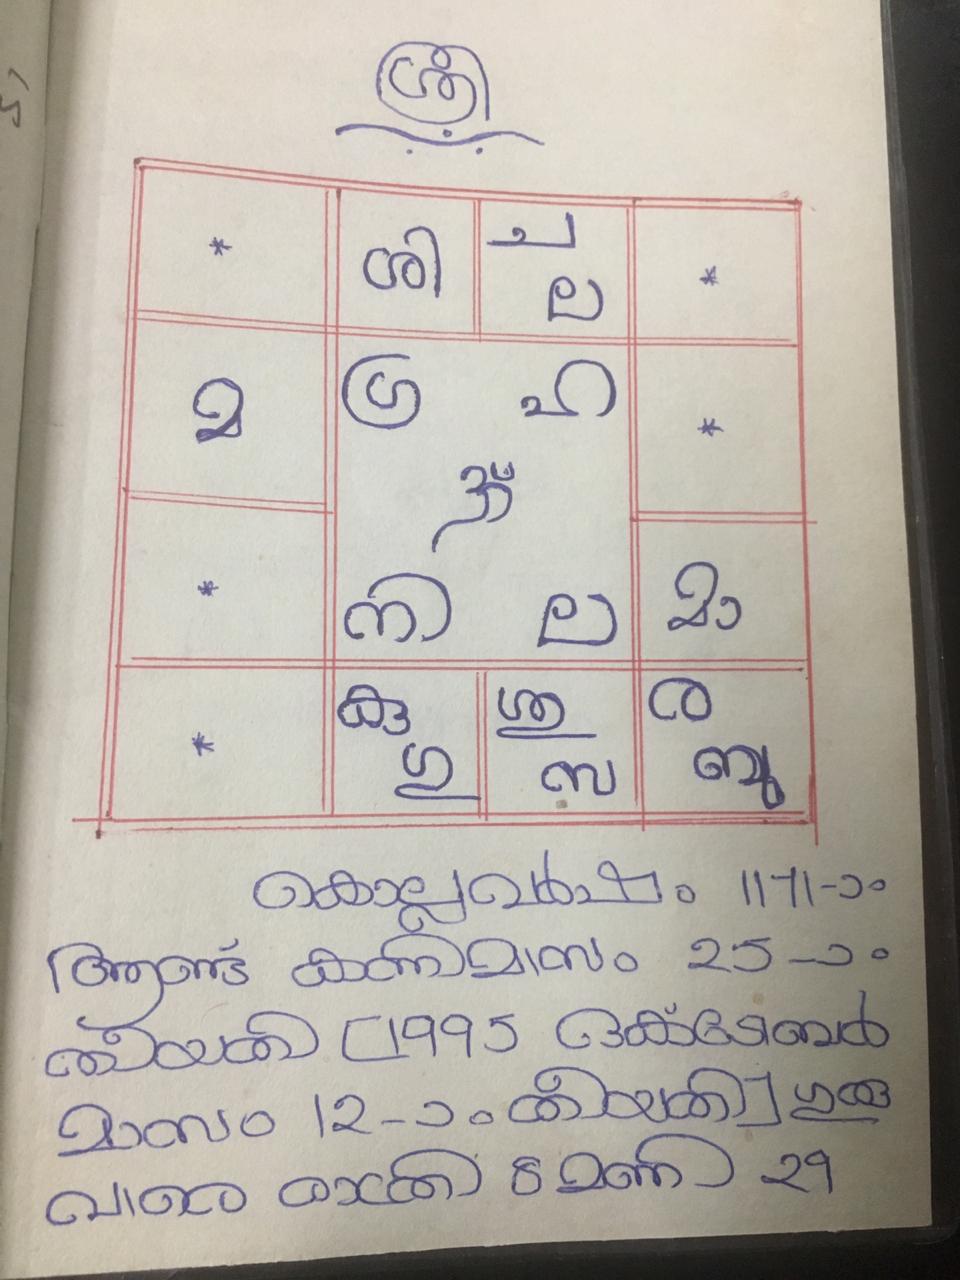 ശ്രീ
* ശി ച *
ല
മ ഗ്ര ഹ *
നി ല മാ
*
* കു ശു ര
ഗു സ ബു
കൊല്ലവർഷം 1171-ാം
ആണ്ട് കന്നിമാസം 25-ാം
തീയതി [1995 ഒക്ടോബർ
മാസം 12-ാം തീയതി] ഗുരു
വാരെ രാത്രി 8 മണി 29